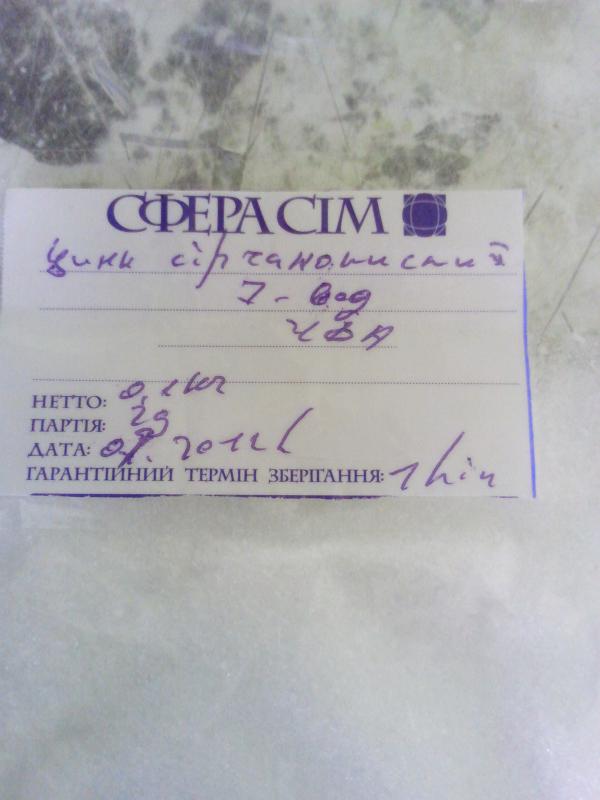 СФЕРА СІМ
Цинк сірчанокислий
7-вод
ЧДА
НЕТТО: 0,1 кг
ПАРТІЯ: 29
ДАТА:
ГАРАНТІЙНИЙ ТЕРМІН ЗБЕРІГАННЯ: 1 рік